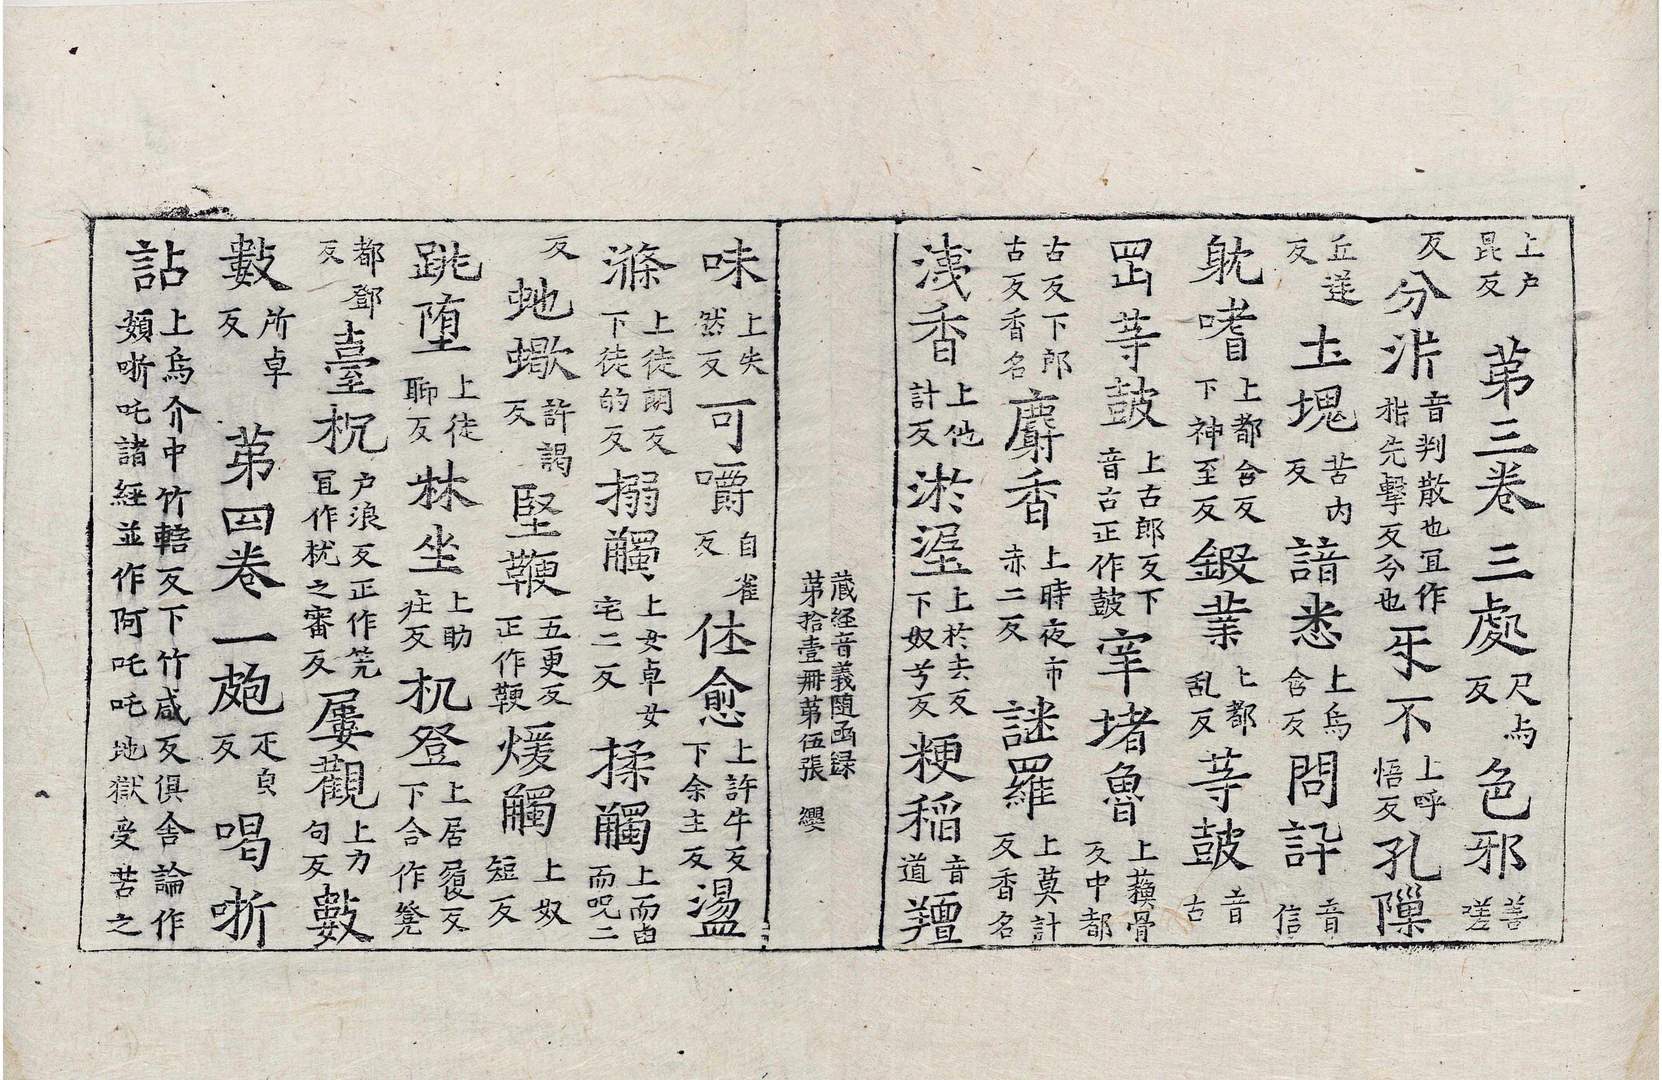 上户昆反 第三卷 三處尺与反色邪善嗟
反分泮音判散也冝作㨖先擊反分也乐不上呼悟反孔隟
丘逆反土塊苦内反諳悉上烏含反問訊音信
躭嗜上都含反下神至反鍛業上都乱反䓁皷音古
䍏䓁皷上古郎反下音古正作鼓窣堵魯上蘓骨反中都
古反下郎古反香名麝香上時夜市赤二反謎羅上莫計反香名
洟香上他計反淤湦上於去反下奴兮反粳稻音道羶
藏経音義隨函録第拾壹冊第伍張 纓
味上失然反可嚼自雀反㑗愈上許牛反下余主反盪
滌上徒朗反下徒的反搦觸上女卓女宅二反揉觸上而㐭而呪二
反虵蠍許謁反堅鞕五更反正作鞭煖觸上奴短反
跳堕上徒聊反牀坐上助疰反机登上居履反下合作凳
都鄧反臺桄户浪反正作笐冝作㭇之審反屢觀上力句反數
數所卓反 第四卷 一皰疋皃反喝哳
詀上烏介中竹轄反下竹咸反俱舎論作頞哳吒諸経並作阿吒吒地獄受苦之